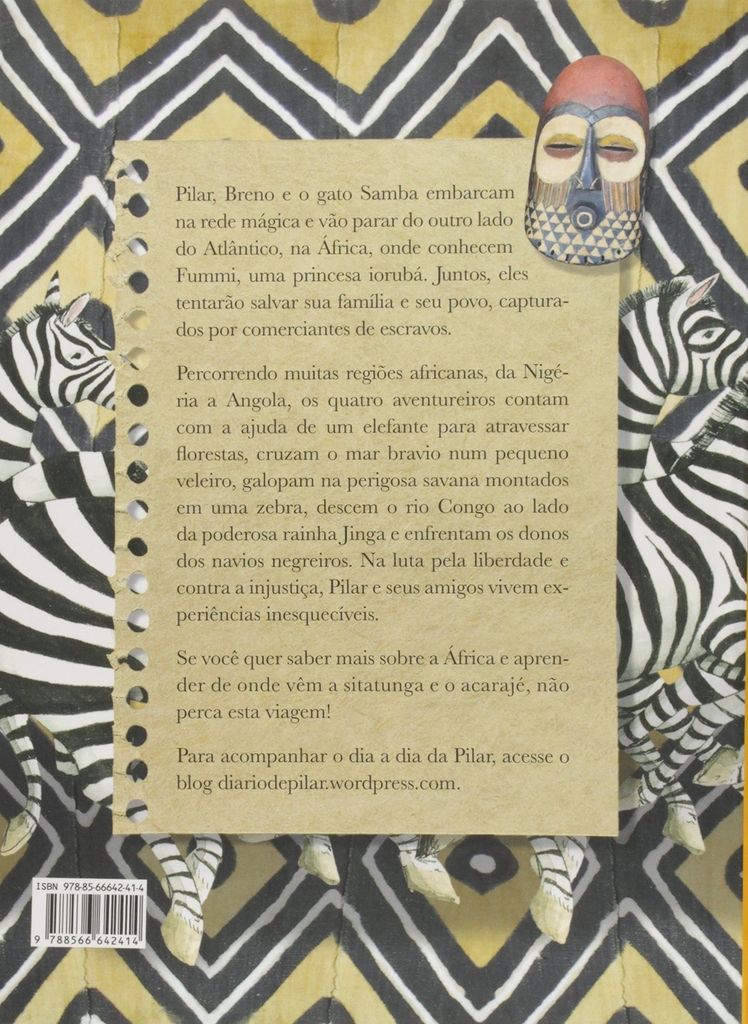 Pilar, Breno e o gato Samba embarcam
na rede mágica e vão parar do outro lado
do Atlântico, na África, onde conhecem
Fummi, uma princesa iorubá. Juntos, eles
tentarão salvar sua família e seu povo, captura-
dos por comerciantes de escravos.
Percorrendo muitas regiões africanas, da Nigé-
ria a Angola, os quatro aventureiros contam
com a ajuda de um elefante para atravessar
florestas, cruzam o mar bravio num pequeno
veleiro, galopam na perigosa savana montados
em uma zebra, descem o rio Congo ao lado
da poderosa rainha Jinga e enfrentam os donos
dos navios negreiros. Na luta pela liberdade e
contra a injustiça, Pilar e seus amigos vivem ex-
periências inesquecíveis.
Se você quer saber mais sobre a África e apren-
der de onde vêm a sitatunga e o acarajé, não
perca esta viagem!
Para acompanhar o dia a dia da Pilar, acesse o
blog diariodepilar.wordpress.com.
ISBN 978-85-66642-41-4
9 788566 642414